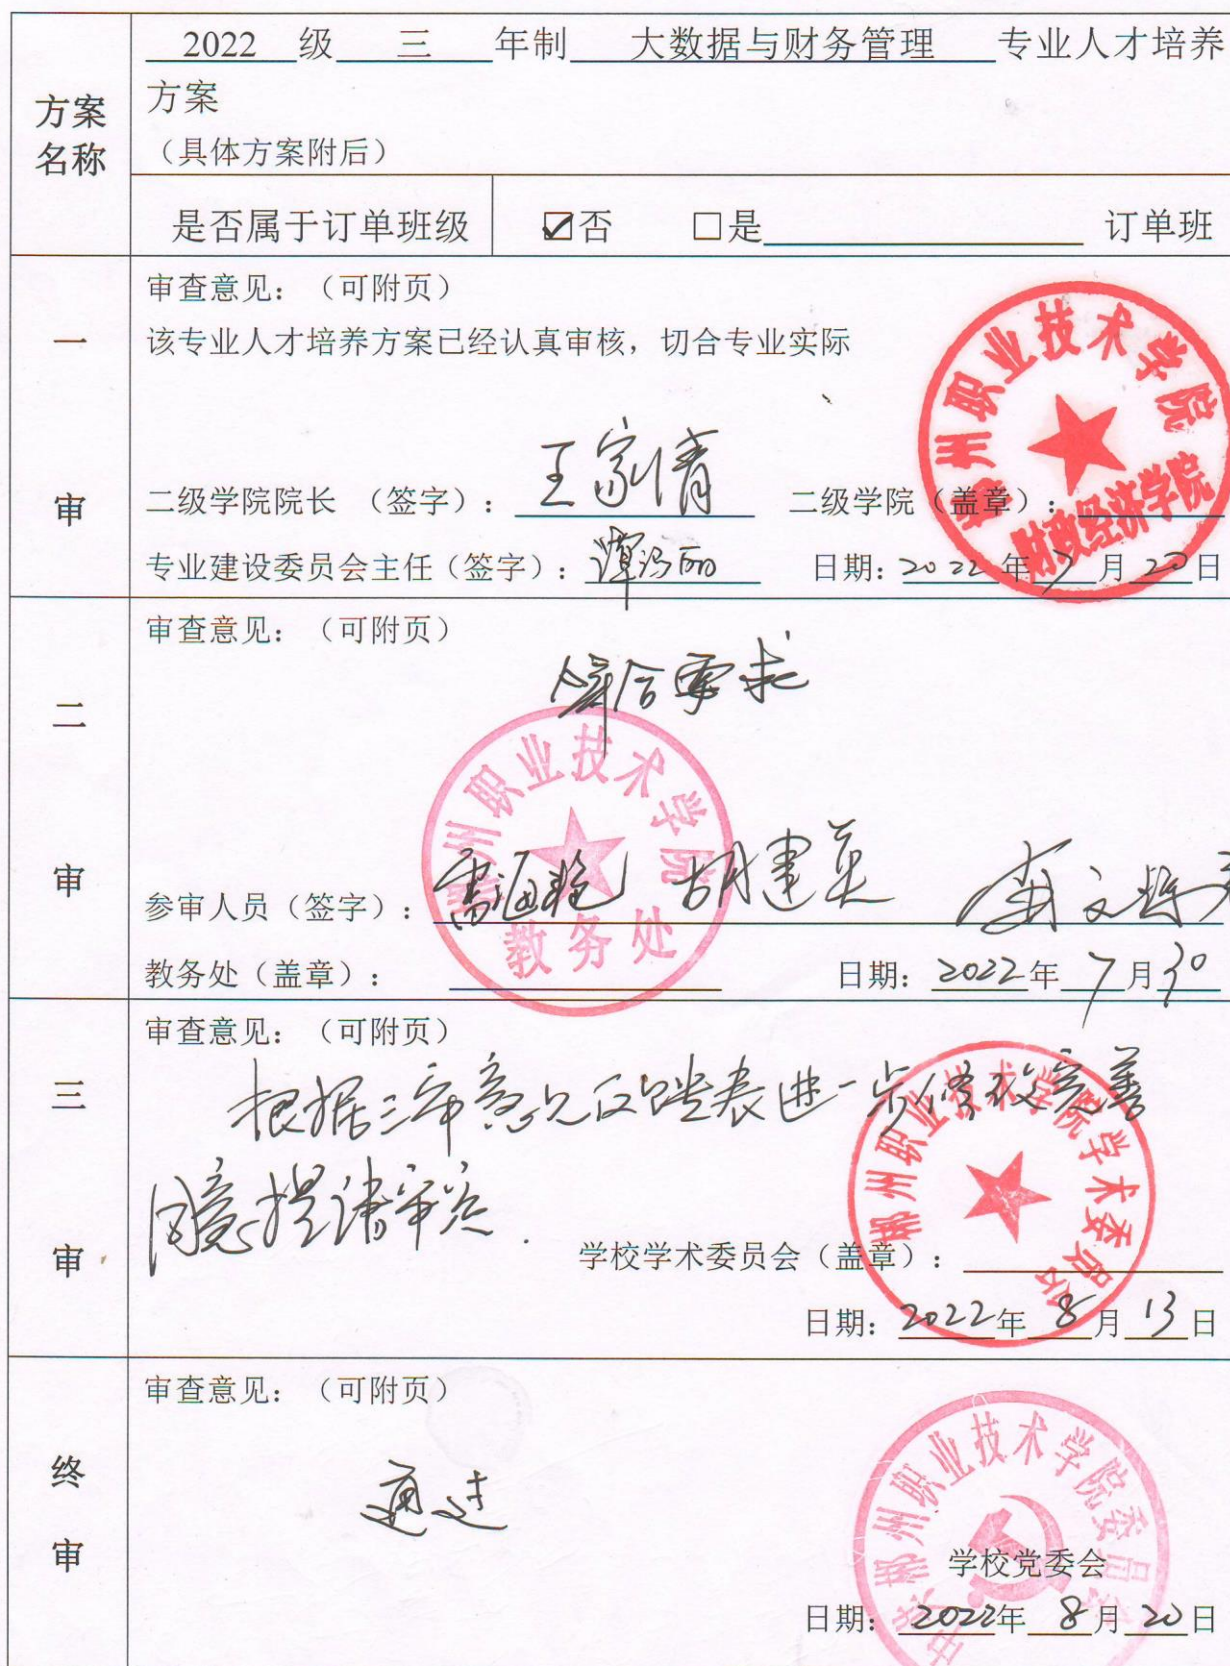 2022 级 三 年制 大数据与财务管理 专业人才培养
方案
（具体方案附后）
方案
名称
是否属于订单班级 ☑否 □是 订单班
一
审
审查意见：（可附页）
该专业人才培养方案已经认真审核，切合专业实际
二级学院院长 （签字）：王家清 二级学院（盖章）：
专业建设委员会主任（签字）： 日期：2022年7月20日
郴州职业技术学院
财政经济学院
二
审
审查意见：（可附页）
符合要求
参审人员（签字）：雷海艳 胡建英
教务处（盖章）： 日期：2022年7月30
郴州职业技术学院
教务处
三
审
审查意见：（可附页）
根据三审意见反馈表进一步修改完善
同意提请审定.
学校学术委员会（盖章）：
日期：2022年8月13日
郴州职业技术学院学术委员会
终
审
审查意见：（可附页）
通过
学校党委会
日期：2022年8月20日
中共郴州职业技术学院委员会